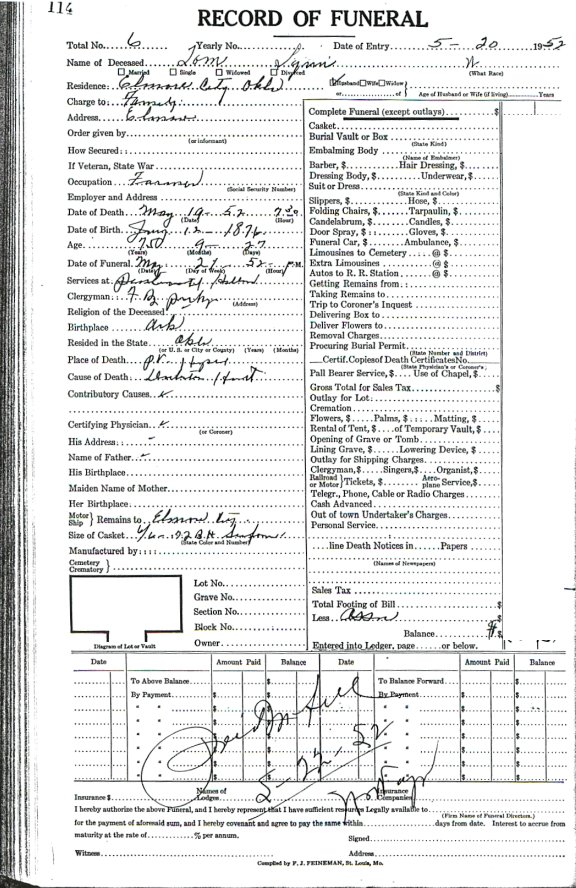 114
RECORD OF FUNERAL
Total No. 6 Yearly No. Date of Entry 5-20 1952
Name of Deceased Tom
Married Single Widowed Divorced (What Race)
Residence: Elmore City Okla Husband Wife Widow
or of Age of Husband or Wife (if living) Years
Charge to: Family
Address Elmore
Order given by
(or informant)
How Secured:
If Veteran, State War
Occupation Farmer
(Social Security Number)
Employer and Address
Date of Death May 19 52 7:30
(Date) (Hour)
Date of Birth 12 1876
Age 75 9 27
(Years) (Months) (Days)
Date of Funeral May 21 52 P.M.
(Date) (Day of Week) (Hour)
Services at
Clergyman: F. B.
(Address)
Religion of the Deceased
Birthplace Ark
Resided in the State Okla
(or U. S. or City or County) (Years) (Months)
Place of Death P.V. Hosp
Cause of Death Heart
Contributory Causes
Certifying Physician
(or Coroner)
His Address:
Name of Father
His Birthplace
Maiden Name of Mother
Her Birthplace
Motor
Ship } Remains to Elmore City
Size of Casket
(State Color and Number)
Manufactured by
Cemetery
Crematory }
Diagram of Lot or Vault
Lot No.
Grave No.
Section No.
Block No.
Owner
Complete Funeral (except outlays) $
Casket
Burial Vault or Box
(State Kind)
Embalming Body
(Name of Embalmer)
Barber, $ Hair Dressing, $
Dressing Body, $ Underwear, $
Suit or Dress
(State Kind and Color)
Slippers, $ Hose, $
Folding Chairs, $ Tarpaulin, $
Candelabrum, $ Candles, $
Door Spray, $ Gloves, $
Funeral Car, $ Ambulance, $
Limousines to Cemetery @ $
Extra Limousines @ $
Autos to R. R. Station @ $
Getting Remains from:
Taking Remains to
Trip to Coroner's Inquest
Delivering Box to
Deliver Flowers to
Removal Charges
Procuring Burial Permit
(State Number and District)
Certif. Copies of Death Certificates No.
(State Physician's or Coroner's)
Pall Bearer Service, $ Use of Chapel, $
Gross Total for Sales Tax $
Outlay for Lot:
Cremation
Flowers, $ Palms, $ Matting, $
Rental of Tent, $ of Temporary Vault, $
Opening of Grave or Tomb
Lining Grave, $ Lowering Device, $
Outlay for Shipping Charges
Clergyman, $ Singers, $ Organist, $
Railroad
or Motor } Tickets, $ Aeroplane Service, $
Telegr., Phone, Cable or Radio Charges
Cash Advanced
Out of town Undertaker's Charges
Personal Service
line Death Notices in Papers
(Names of Newspapers)
Sales Tax
Total Footing of Bill $
Less Assn $
Balance $
Entered into Ledger, page or below.
Date Amount Paid Balance Date Amount Paid Balance
To Above Balance $ To Balance Forward $
By Payment By Payment
Paid in full
5-22-52
Insurance $ Names of Lodges Insurance Companies
I hereby authorize the above Funeral, and I hereby represent that I have sufficient resources Legally available to
(Firm Name of Funeral Directors.)
for the payment of aforesaid sum, and I hereby covenant and agree to pay the same within days from date. Interest to accrue from
maturity at the rate of % per annum. Signed
Witness Address
Compiled by F. J. FEINEMAN, St. Louis, Mo.